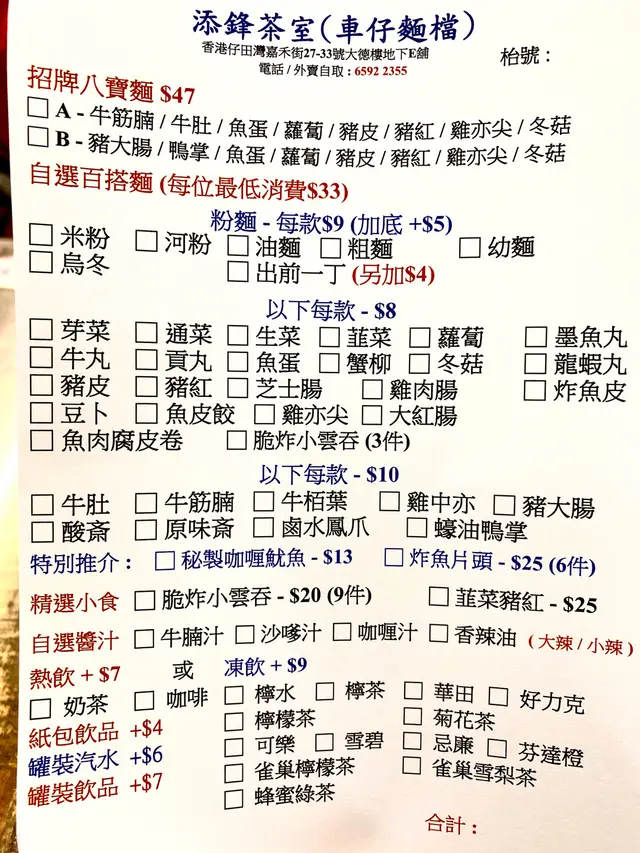 添鋒茶室(車仔麵檔)
香港仔田灣嘉禾街27-33號大德樓地下E舖
電話 / 外賣自取 : 6592 2355
枱號 :
招牌八寶麵 $47
A - 牛筋腩 / 牛肚 / 魚蛋 / 蘿蔔 / 豬皮 / 豬紅 / 雞亦尖 / 冬菇
B - 豬大腸 / 鴨掌 / 魚蛋 / 蘿蔔 / 豬皮 / 豬紅 / 雞亦尖 / 冬菇
自選百搭麵 (每位最低消費$33)
粉麵 - 每款$9 (加底 +$5)
米粉 河粉 油麵 粗麵 幼麵
烏冬 出前一丁 (另加$4)
以下每款 - $8
芽菜 通菜 生菜 韮菜 蘿蔔 墨魚丸
牛丸 貢丸 魚蛋 蟹柳 冬菇 龍蝦丸
豬皮 豬紅 芝士腸 雞肉腸 炸魚皮
豆卜 魚皮餃 雞亦尖 大紅腸
魚肉腐皮卷 脆炸小雲吞 (3件)
以下每款 - $10
牛肚 牛筋腩 牛栢葉 雞中亦 豬大腸
酸斎 原味斎 鹵水鳳爪 蠔油鴨掌
特別推介 : 秘製咖喱魷魚 - $13 炸魚片頭 - $25 (6件)
精選小食 脆炸小雲吞 - $20 (9件) 韮菜豬紅 - $25
自選醬汁 牛腩汁 沙嗲汁 咖喱汁 香辣油 ( 大辣 / 小辣 )
熱飲 + $7 或 凍飲 + $9
奶茶 咖啡 檸水 檸茶 華田 好力克
檸檬茶 菊花茶
紙包飲品 +$4
可樂 雪碧 忌廉 芬達橙
罐裝汽水 +$6
雀巢檸檬茶 雀巢雪梨茶
罐裝飲品 +$7
蜂蜜綠茶
合計 :